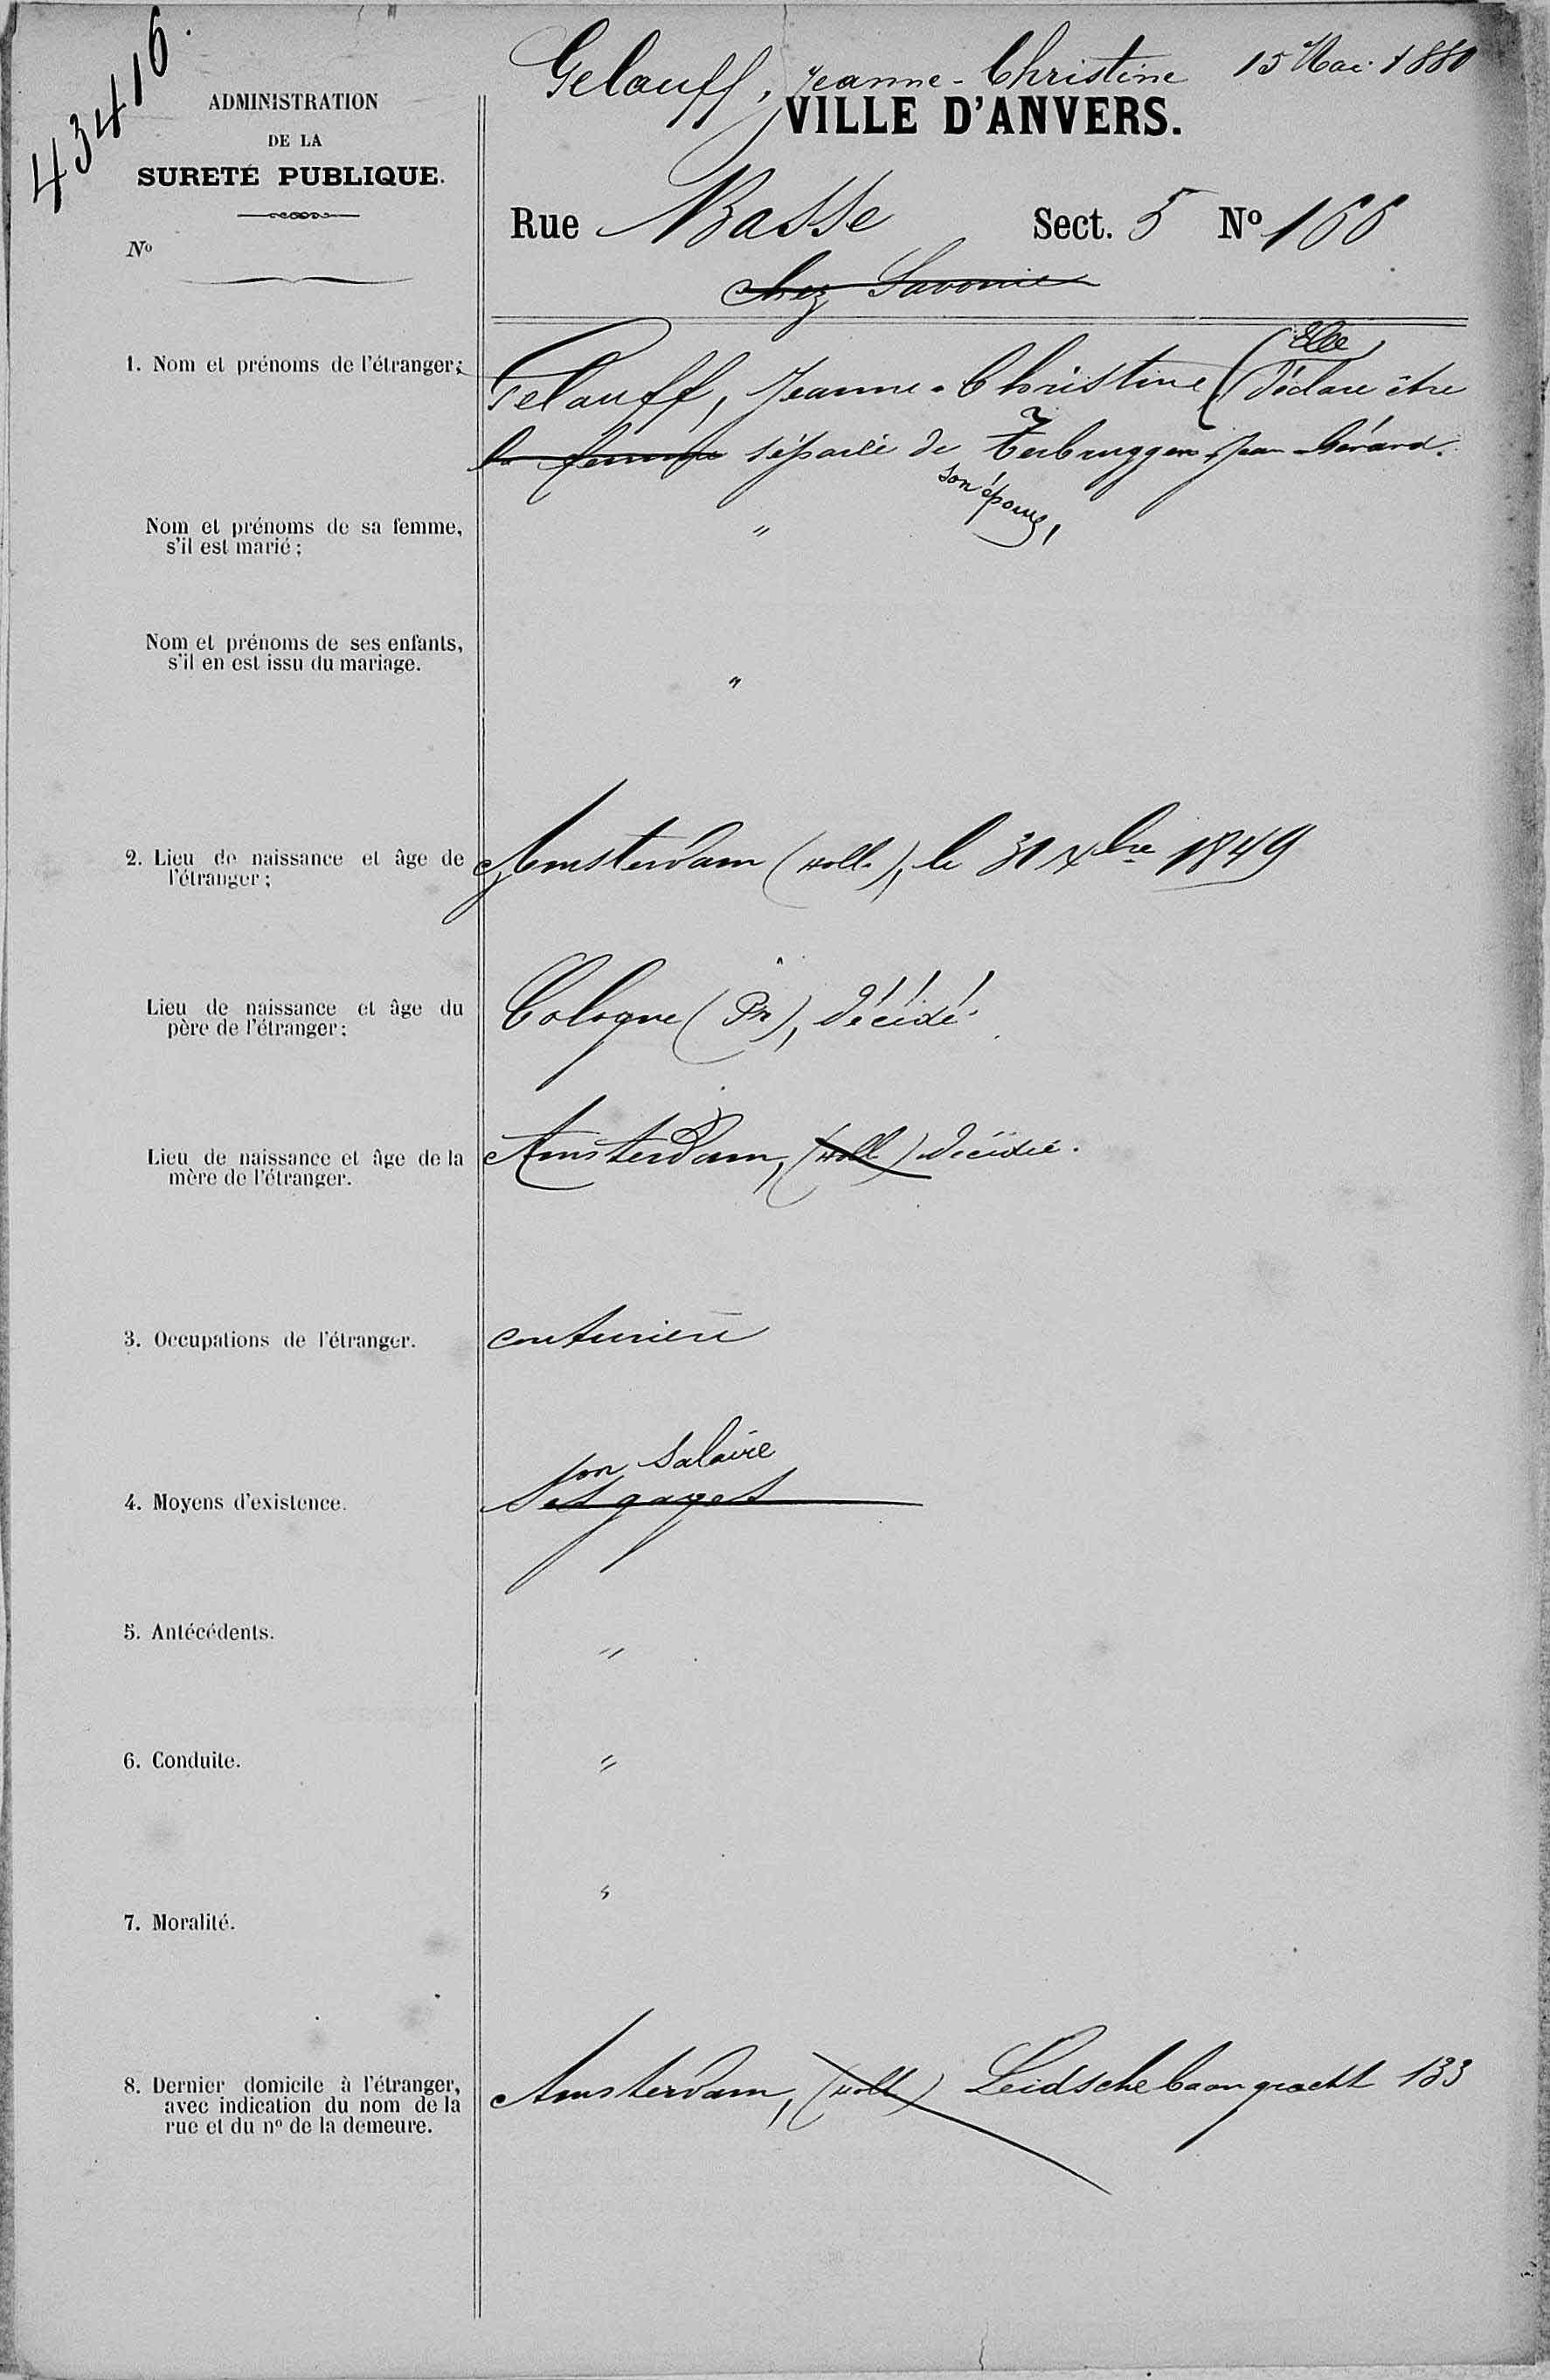 434116.
Gelauff, Jeanne-Christine 15 Mai 1880
ADMINISTRATION
DE LA
SURETÉ PUBLIQUE.
Nº
VILLE D'ANVERS.
Rue Basse Sect. 5 Nº 166
chez Savonie
1. Nom et prénoms de l'étranger;
Gelauff, Jeanne-Christine (Elle déclare être
la femme séparée de Terbruggen, Jean-Gérard.
son époux,
Nom et prénoms de sa femme,
s'il est marié;
"
Nom et prénoms de ses enfants,
s'il en est issu du mariage.
"
2. Lieu de naissance et âge de
l'étranger;
Amsterdam (Holl.), le 31 Xbre 1849
Lieu de naissance et âge du
père de l'étranger;
Cologne (Pr), décédé.
Lieu de naissance et âge de la
mère de l'étranger.
Amsterdam, (Holl) décédée.
3. Occupations de l'étranger.
couturière
4. Moyens d'existence.
son salaire
Ses gages
5. Antécédents.
"
6. Conduite.
"
7. Moralité.
"
8. Dernier domicile à l'étranger,
avec indication du nom de la
rue et du nº de la demeure.
Amsterdam, (Holl) Leidschebaangracht 133